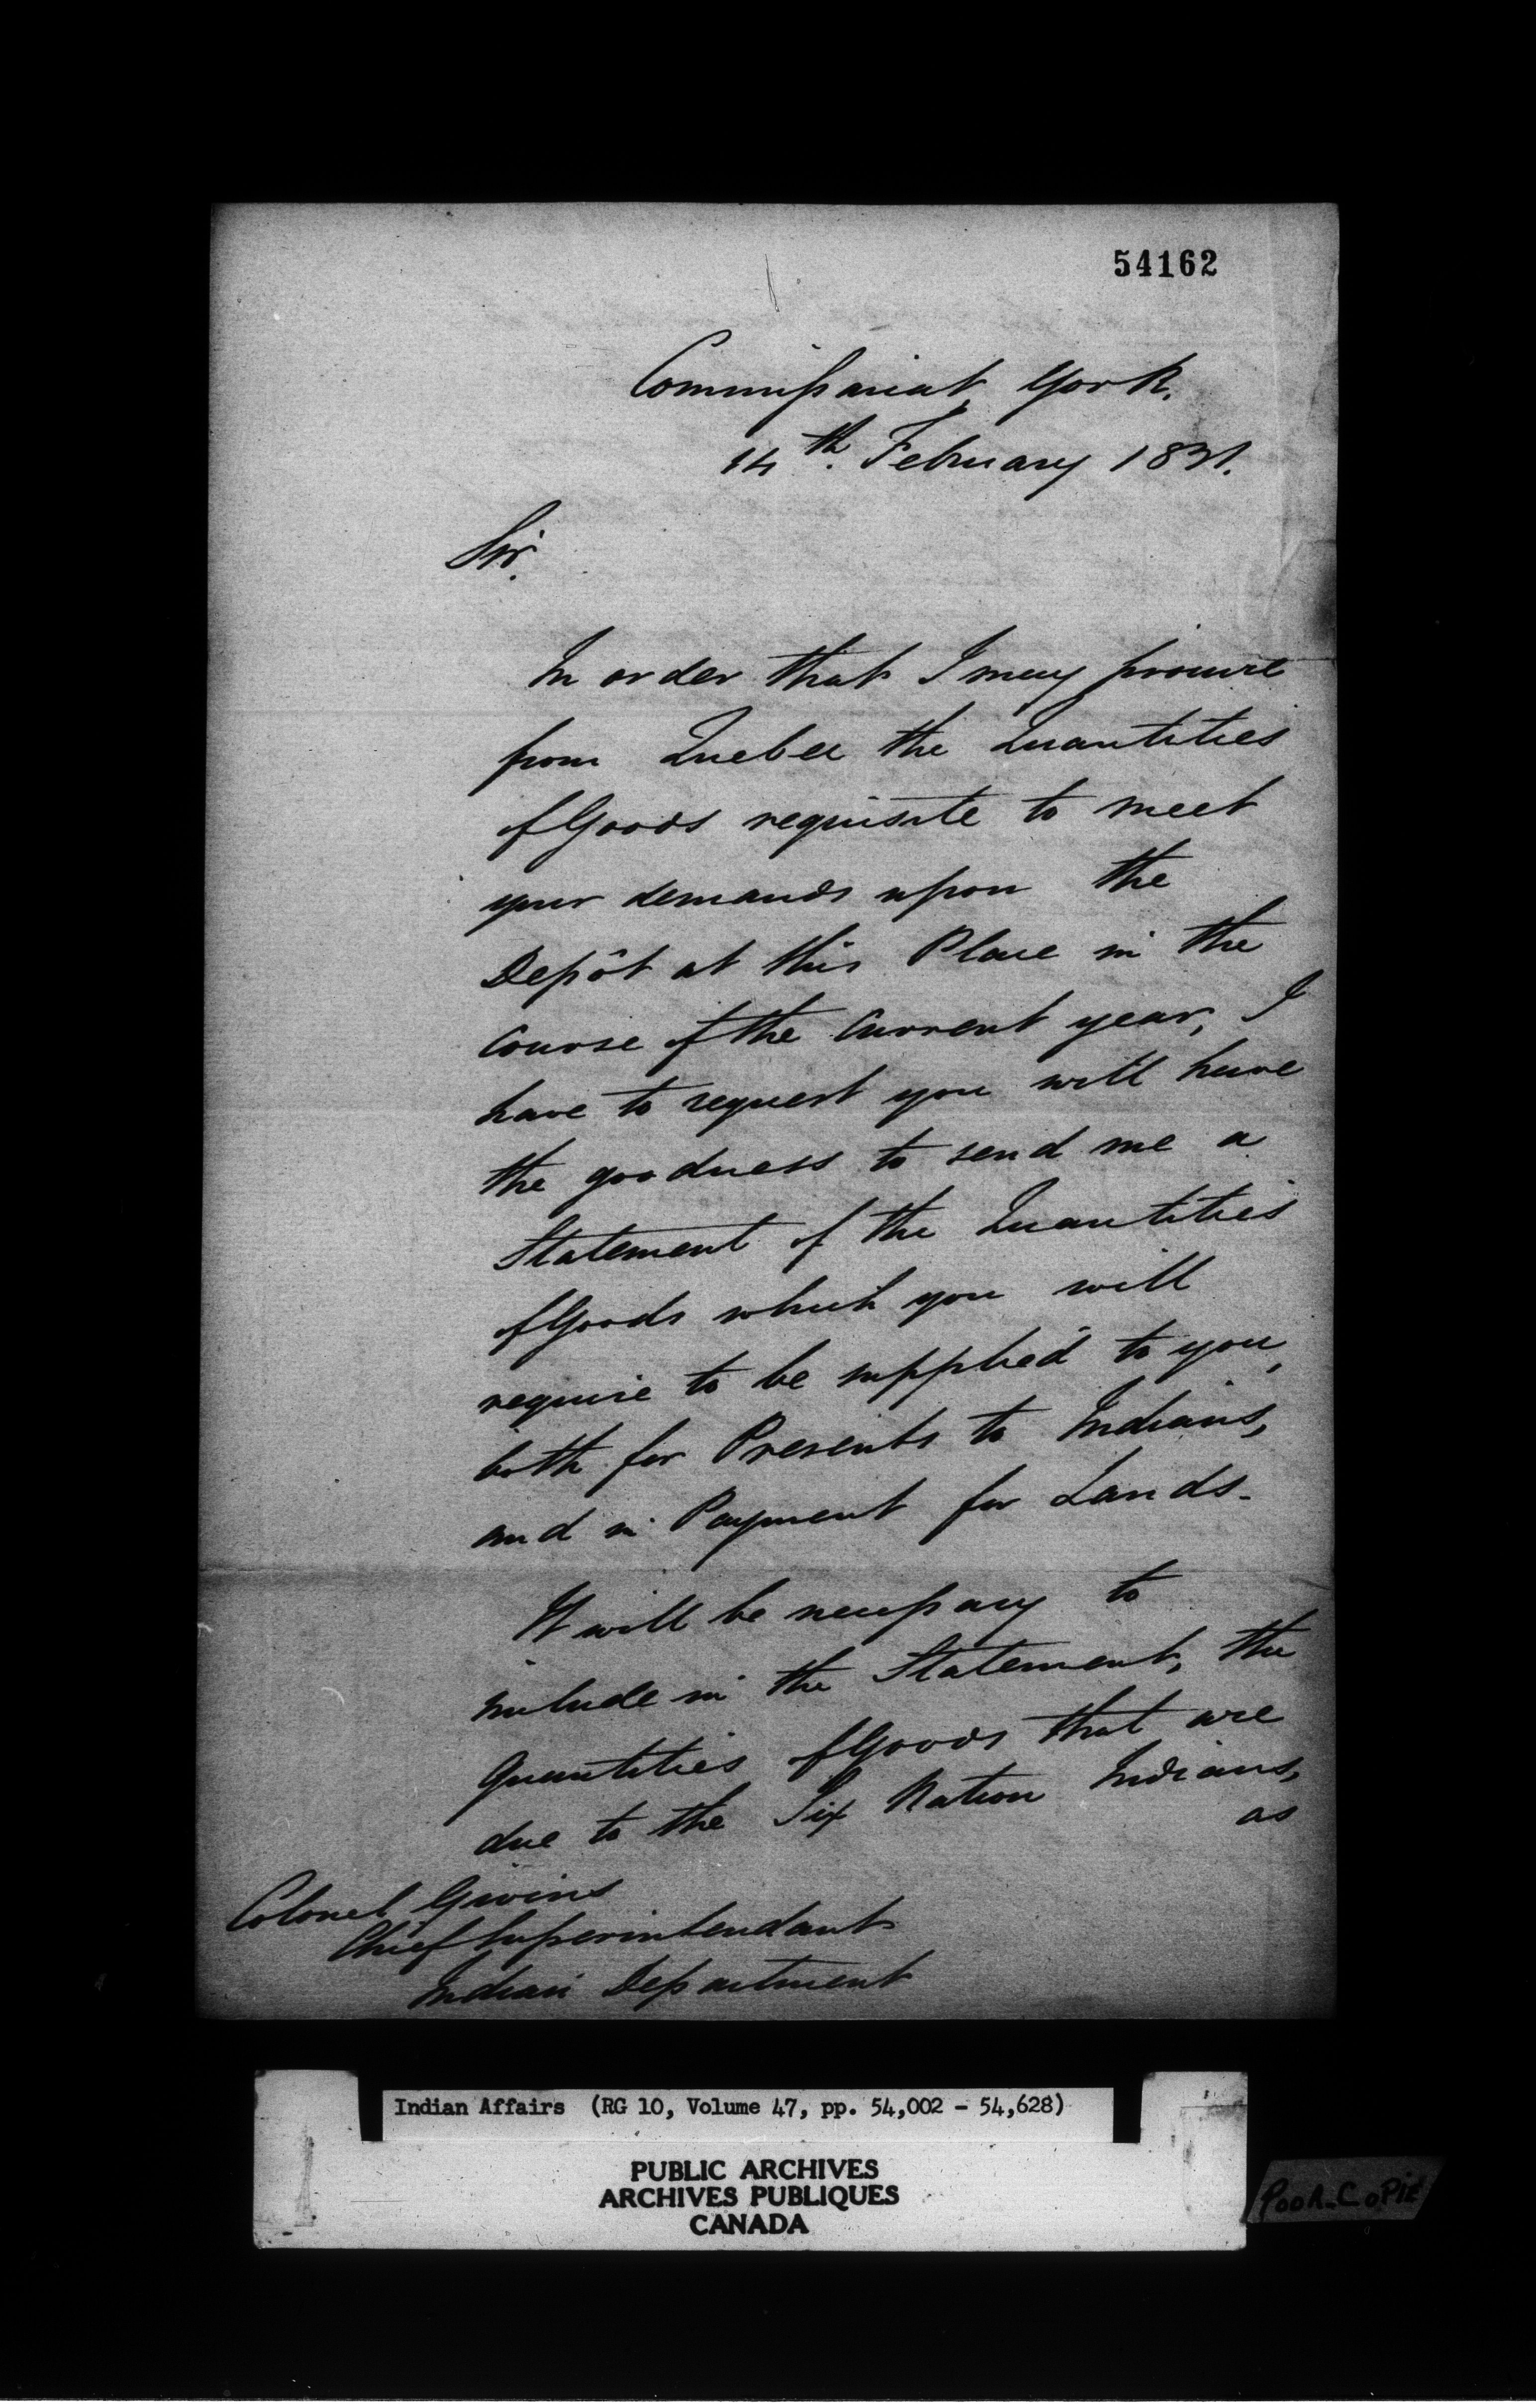 54162
Commissariat York.
14th. February 1831.
Sir.
In order that I may procure
from Quebec the Quantities
of Goods requisite to meet
your demands upon the
Depôt at this Place in the
course of the current year, I
have to request you will have
the goodness to send me a
Statement of the Quantities
of Goods which you will
require to be supplied to you,
both for Presents to Indians,
and in Payment for Lands.
It will be necessary to
include in the Statement, the
Quantities of Goods that are
due to the Six Nation Indians,
as
Colonel Givins
Chief Superintendant
Indian Department
Indian Affairs (RG 10, Volume 47, pp. 54,002 - 54,628)
PUBLIC ARCHIVES
ARCHIVES PUBLIQUES
CANADA
POOR_COPIE